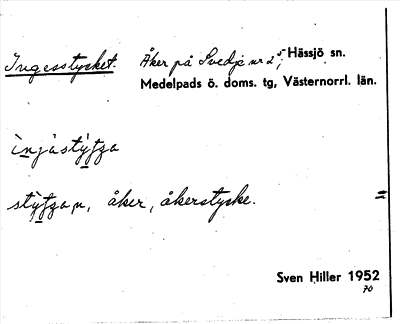 Ingesstycket. Åker på Svedje nr 2⁵; Hässjö sn.
Medelpads ö. doms. tg, Västernorrl. län.
åker, åkerstycke. =
Sven Hiller 1952
70